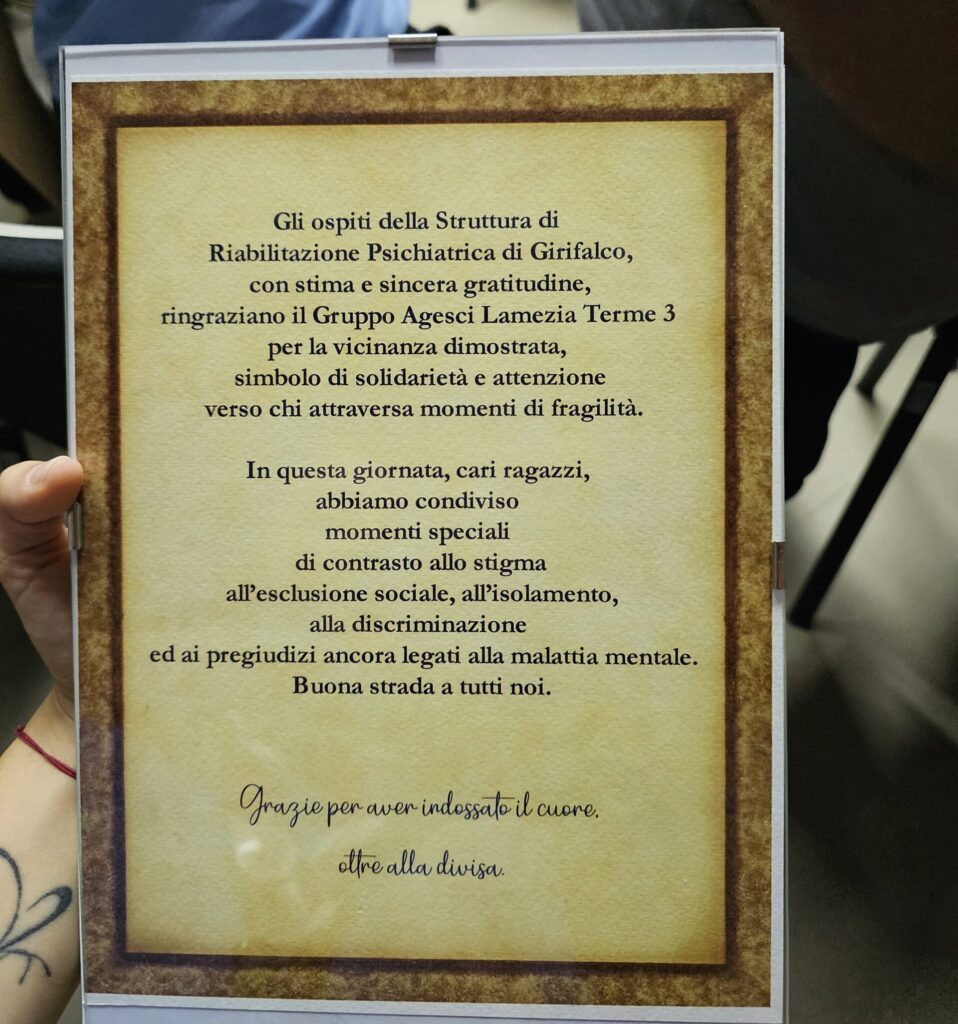 Gli ospiti della Struttura di
Riabilitazione Psichiatrica di Girifalco,
con stima e sincera gratitudine,
ringraziano il Gruppo Agesci Lamezia Terme 3
per la vicinanza dimostrata,
simbolo di solidarietà e attenzione
verso chi attraversa momenti di fragilità.
In questa giornata, cari ragazzi,
abbiamo condiviso
momenti speciali
di contrasto allo stigma
all’esclusione sociale, all’isolamento,
alla discriminazione
ed ai pregiudizi ancora legati alla malattia mentale.
Buona strada a tutti noi.
Grazie per aver indossato il cuore.
oltre alla divisa.